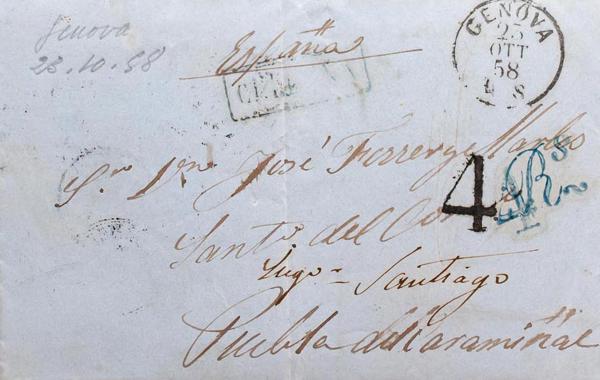 Genova
23.10.58
España
GENOVA
25
OTT
58
Sr Dn José Ferrer y
4 R
Santo del
Lugo = Santiago
Puebla del Caramiñal